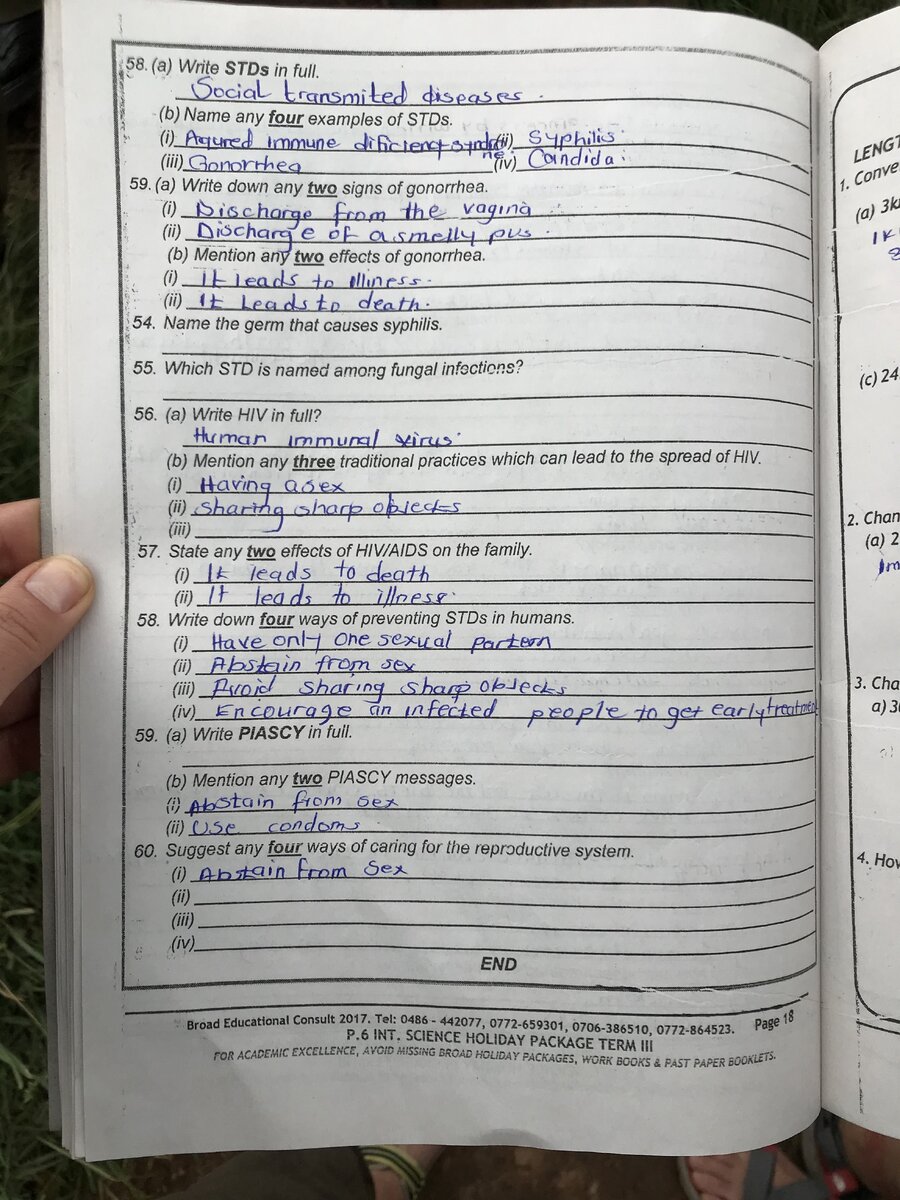 58. (a) Write STDs in full.
Social transmited diseases.
(b) Name any four examples of STDs.
(i) Aqured immune dificiency syndrome (ii) Syphilis.
(iii) Gonorrhea (iv) Candida.
59. (a) Write down any two signs of gonorrhea.
(i) Discharge from the vagina
(ii) Discharge of a smelly pus.
(b) Mention any two effects of gonorrhea.
(i) It leads to illiness.
(ii) It Leads to death.
54. Name the germ that causes syphilis.
55. Which STD is named among fungal infections?
56. (a) Write HIV in full?
Human immunal virus.
(b) Mention any three traditional practices which can lead to the spread of HIV.
(i) Having a sex
(ii) Sharing sharp objects
(iii)
57. State any two effects of HIV/AIDS on the family.
(i) It leads to death
(ii) It leads to illness.
58. Write down four ways of preventing STDs in humans.
(i) Have only one sexual partern
(ii) Abstain from sex
(iii) Avoid sharing sharp objects
(iv) Encourage an infected people to get early treatment
59. (a) Write PIASCY in full.
(b) Mention any two PIASCY messages.
(i) Abstain from sex
(ii) Use condoms
60. Suggest any four ways of caring for the reproductive system.
(i) Abstain from Sex
(ii)
(iii)
(iv)
END
Broad Educational Consult 2017. Tel: 0486 - 442077, 0772-659301, 0706-386510, 0772-864523. Page 18
P.6 INT. SCIENCE HOLIDAY PACKAGE TERM III
FOR ACADEMIC EXCELLENCE, AVOID MISSING BROAD HOLIDAY PACKAGES, WORK BOOKS & PAST PAPER BOOKLETS.
1.
(a)
(c) 24
2.
(a) 2
3.
a)
4.